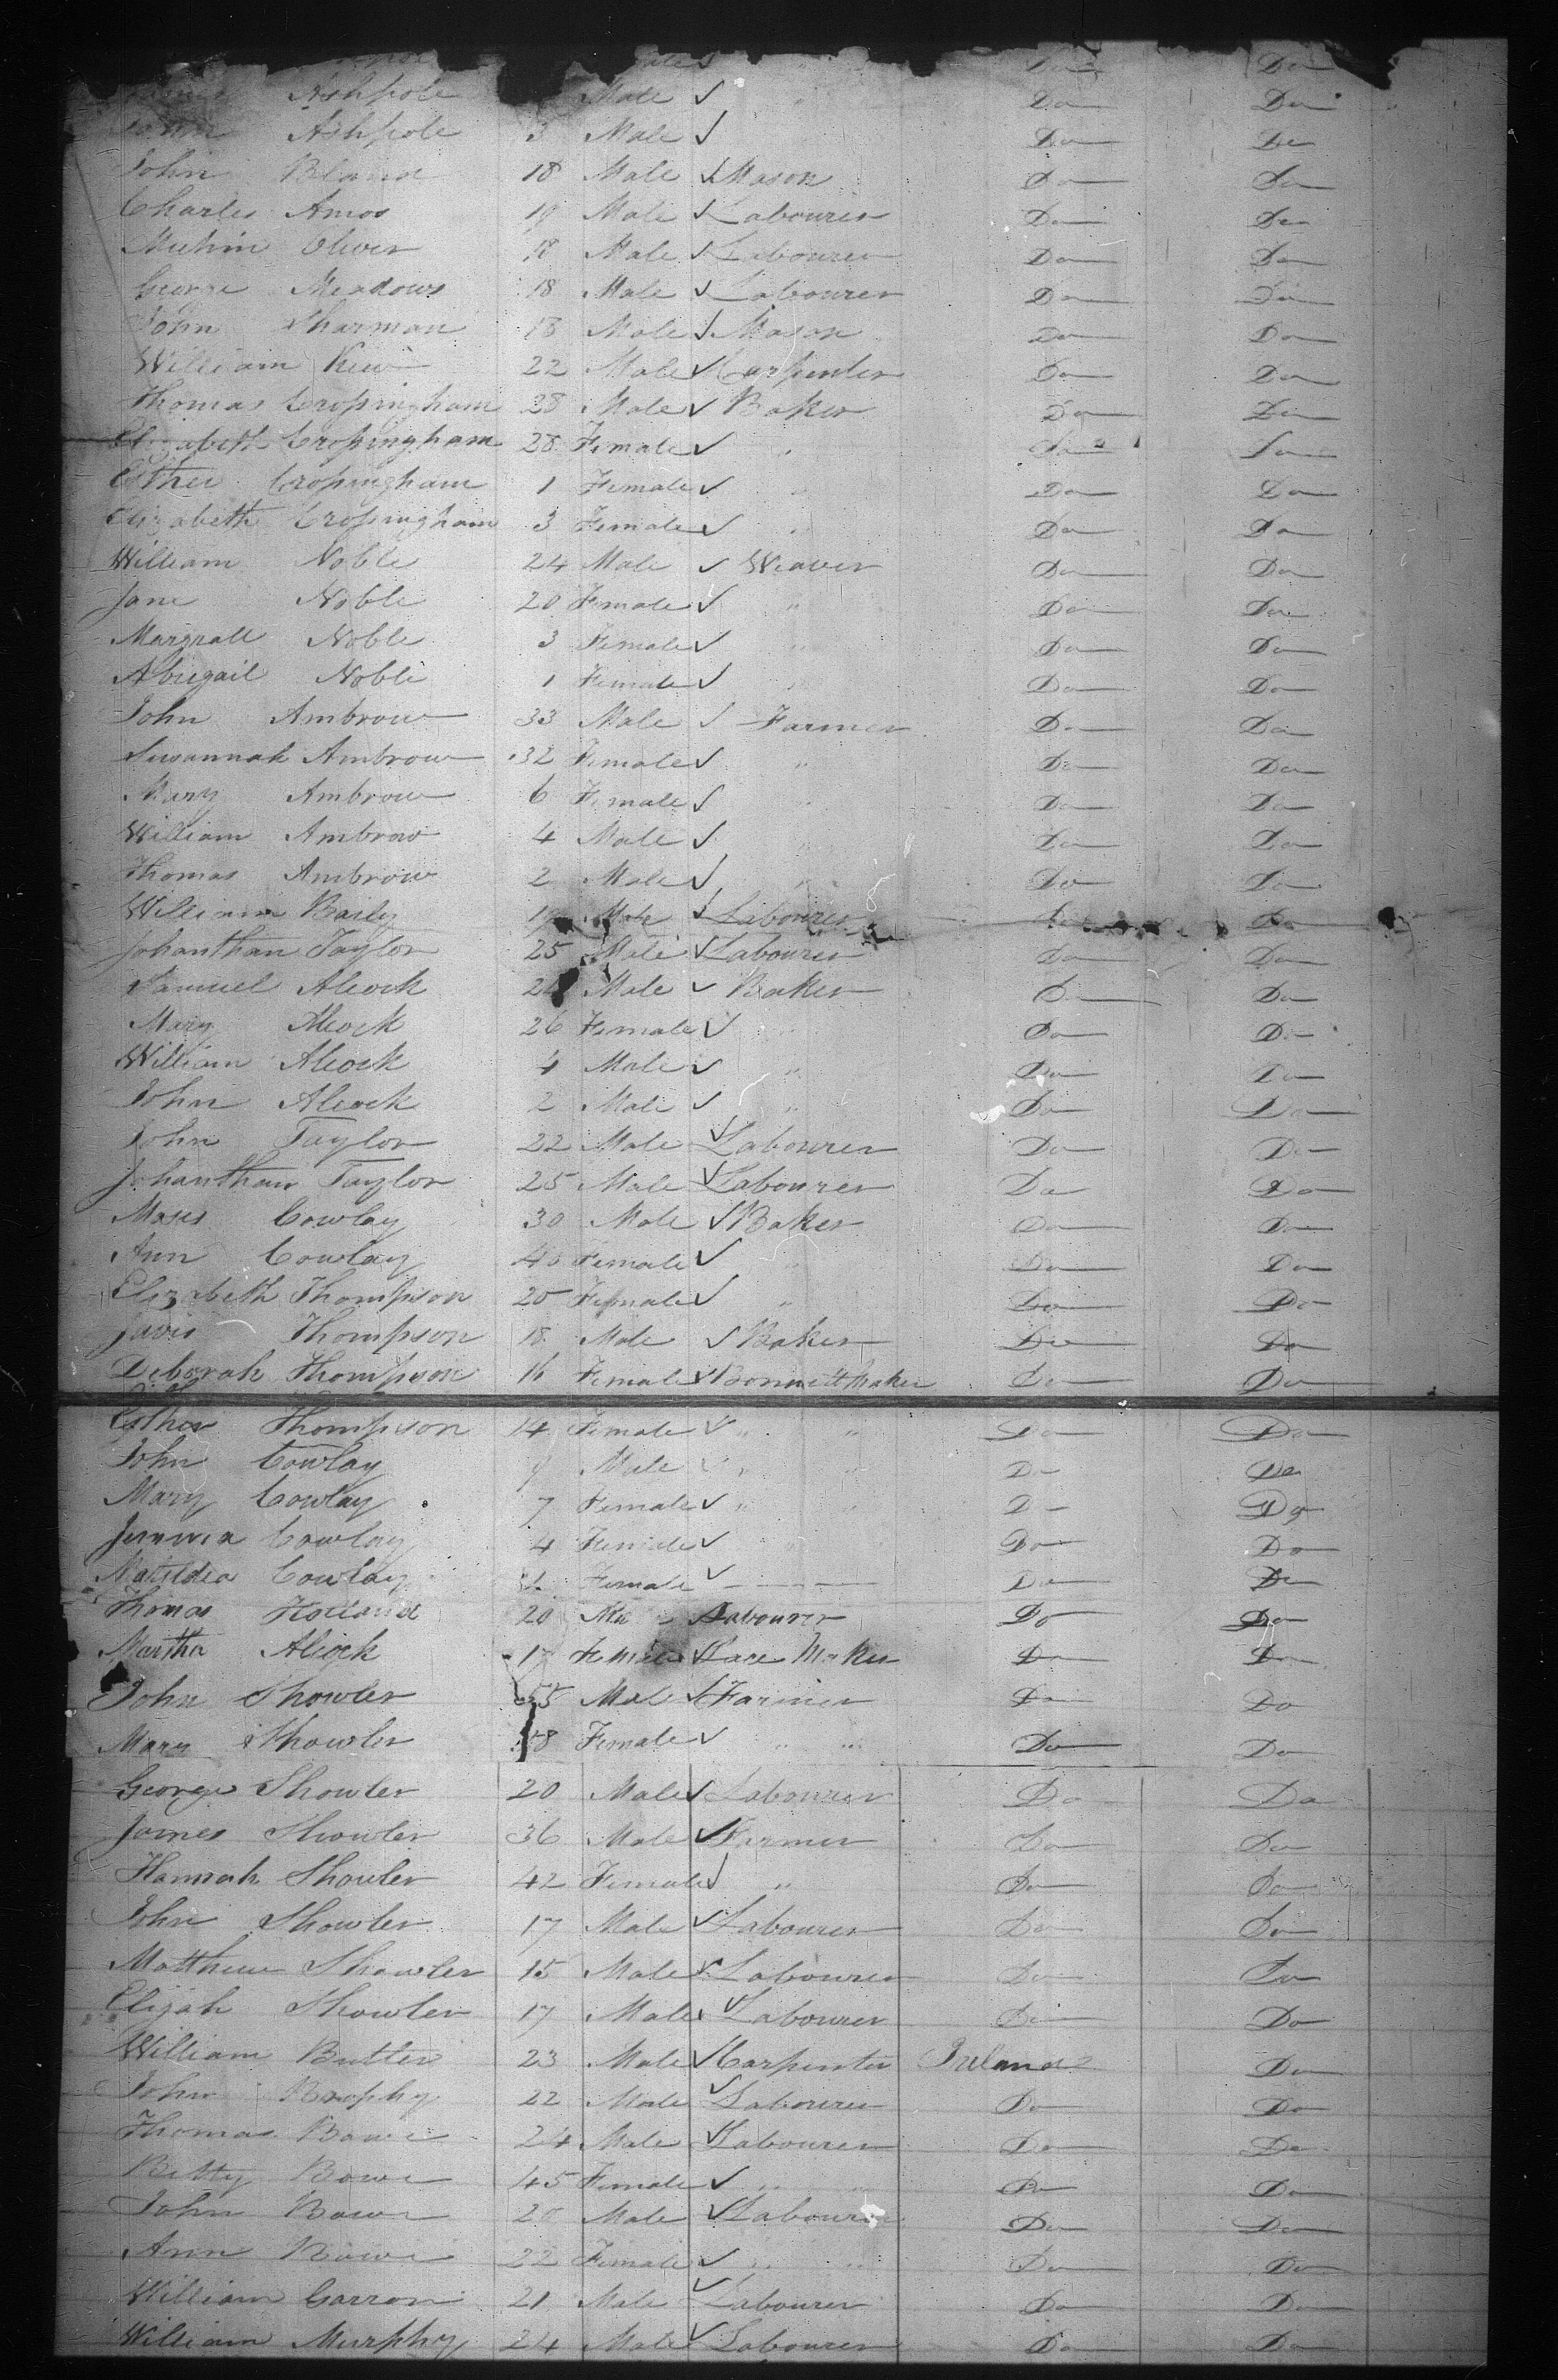 Do Do
Ashpole Male " Do Do
John Ashpole 3 Male Do Do
John Bland 18 Male Mason Do Do
Charles Amos 19 Male Labourer Do Do
Oliver 18 Male Labourer Do Do
George Meadows 18 Male Labourer Do Do
John Sharman 18 Male Mason Do Do
William Kew 22 Male Carpenter Do Do
Thomas Cropingham 28 Male Baker Do Do
Elizabeth Cropingham 28 Female " Do Do
Esther Cropingham 1 Female " Do Do
Elizabeth Cropingham 3 Female " Do Do
William Noble 24 Male Weaver Do Do
Jane Noble 20 Female " Do Do
Margratt Noble 3 Female " Do Do
Abigail Noble 1 Female " Do Do
John Ambrow 33 Male Farmer Do Do
Susannah Ambrow 32 Female " Do Do
Mary Ambrow 6 Female " Do Do
William Ambrow 4 Male " Do Do
Thomas Ambrow 2 Male " Do Do
William Baily 19 Male Labourer Do Do
Johanthan Taylor 25 Male Labourer Do Do
Samuel Alcock Male Baker Do Do
Mary Alcock 26 Female " Do Do
William Alcock 4 Male " Do Do
John Alcock 2 Male " Do Do
John Taylor 22 Male Labourer Do Do
Johanthan Taylor 25 Male Labourer Do Do
Moses Cowlay 30 Male Baker Do Do
Ann Cowlay 40 Female " Do Do
Elizabeth Thompson 20 Female " Do Do
Javis Thompson 18 Male Baker Do Do
Deborah Thompson 16 Female Bonnett Maker Do Do
Esther Thompson 14 Female " " Do Do
John Cowlay 9 Male " " Do Do
Mary Cowlay 7 Female " " Do Do
Jemima Cowlay 4 Female " Do Do
Matildea Cowlay Female Do Do
Thomas Holland 20 Labourer Do Do
Martha Alcock 17 Female Lace Maker Do Do
John Showler 55 Male Farmer Do Do
Mary Showler 58 Female " " Do Do
George Showler 20 Male Labourer Do Do
James Showler 36 Male Farmer Do Do
Hannah Showler 42 Female " Do Do
John Showler 17 Male Labourer Do Do
Matthew Showler 15 Male Labourer Do Do
Elijah Showler 17 Male Labourer Do Do
William Butler 23 Male Carpenter Ireland Do
John Brophy 22 Male Labourer Do Do
Thomas Bowe 24 Male Labourer Do Do
Betty Bowe 45 Female " " Do Do
John Bowe 20 Male Labourer Do Do
Ann Bowe 22 Female " " Do Do
William Carron 21 Male Labourer Do Do
William Murphy 24 Male Labourer Do Do